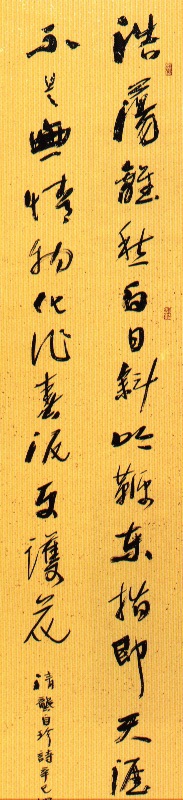 浩蕩離愁白日斜吟鞭東指即天涯
不是無情物化作春泥更護花
清龔自珍詩辛巳